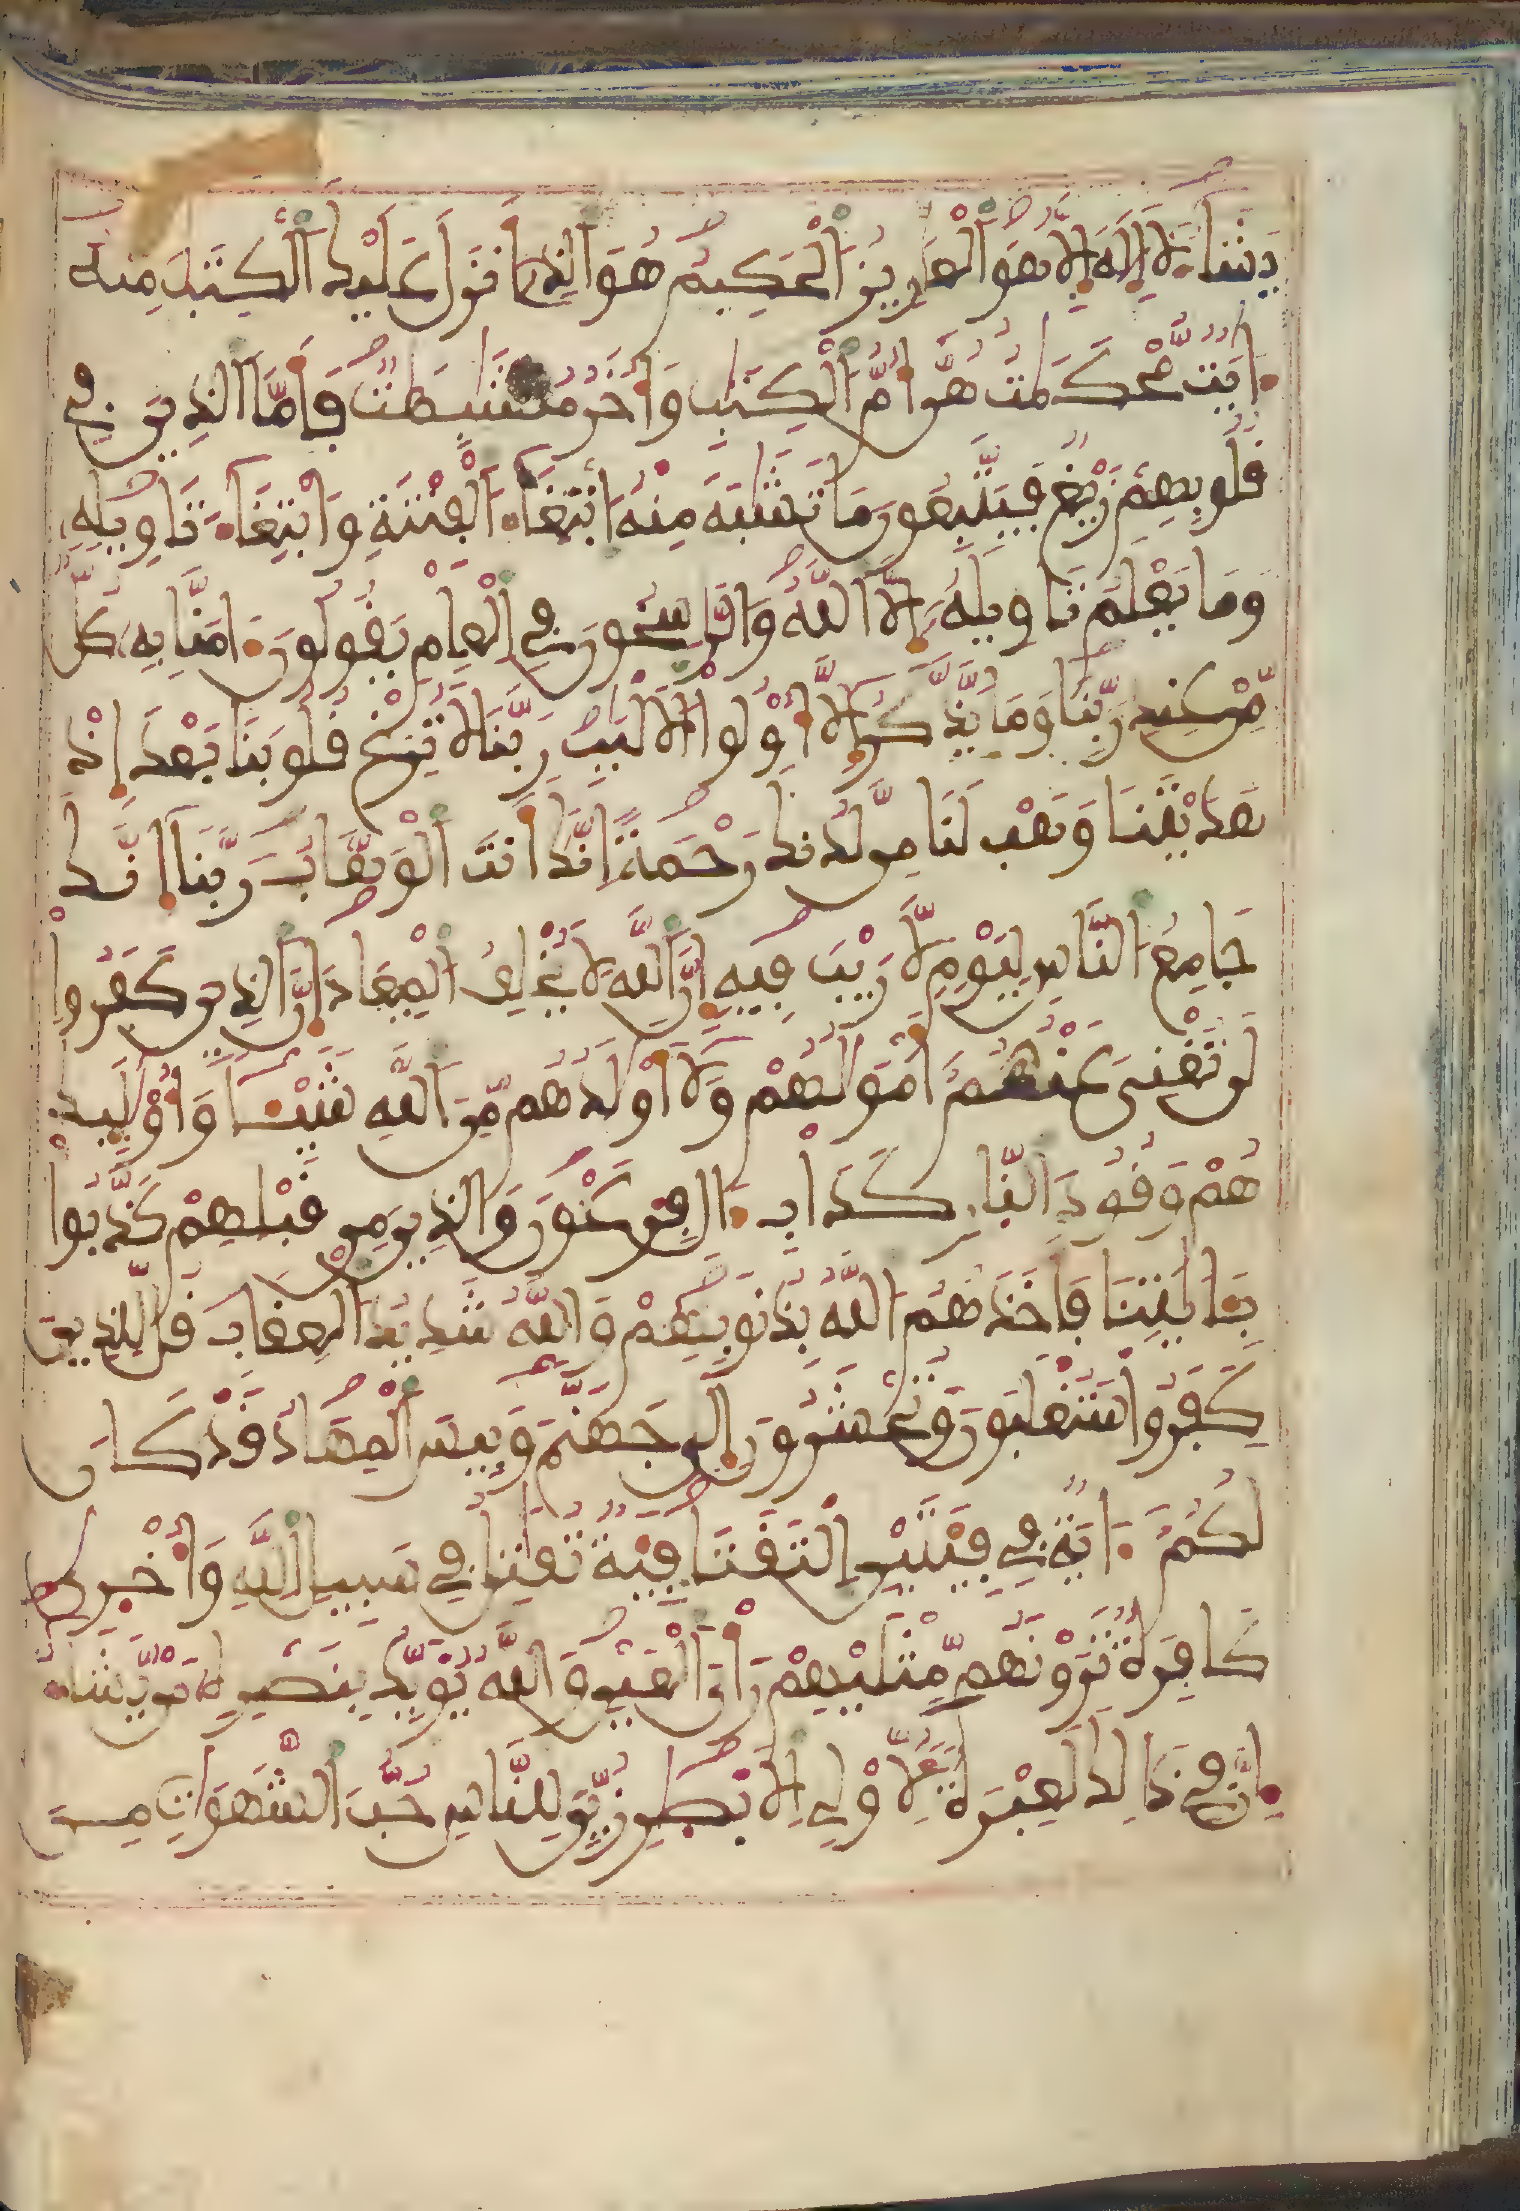 يشاء لا إله إلا هو العزيز الحكيم هو الذي أنزل عليك الكتب منه
ءايت محكمت هن أم الكتب وأخر متشبهت فأما الذين في
قلوبهم زيغ فيتبعون ما تشبه منه ابتغاء الفتنة وابتغاء تاويله
وما يعلم تاويله إلا الله والرسخون في العلم يقولون ءامنا به كل
من عند ربنا وما يذكر إلا أولوا الألبب ربنا لا تزغ قلوبنا بعد إذ
هديتنا وهب لنا من لدنك رحمة إنك أنت الوهاب ربنا إنك
جامع الناس ليوم لا ريب فيه إن الله لا يخلف الميعاد إن الذين كفروا
لن تغنى عنهم أمولهم ولا أولدهم من الله شيئا وأوليك
هم وقود النار كداب ءال فرعون والذين من قبلهم كذبوا
بءايتنا فأخذهم الله بذنوبهم والله شديد العقاب قل للذين
كفروا ستغلبون وتحشرون إلى جهنم وبيس المهاد قد كان
لكم ءاية في فيتين التقتا فية تقتل في سبيل الله وأخرى
كافرة ترونهم مثليهم رأي العين والله يويد بنصره من يشاء
إن في ذالك لعبرة لأولي الأبصر زين للناس حب الشهوات من